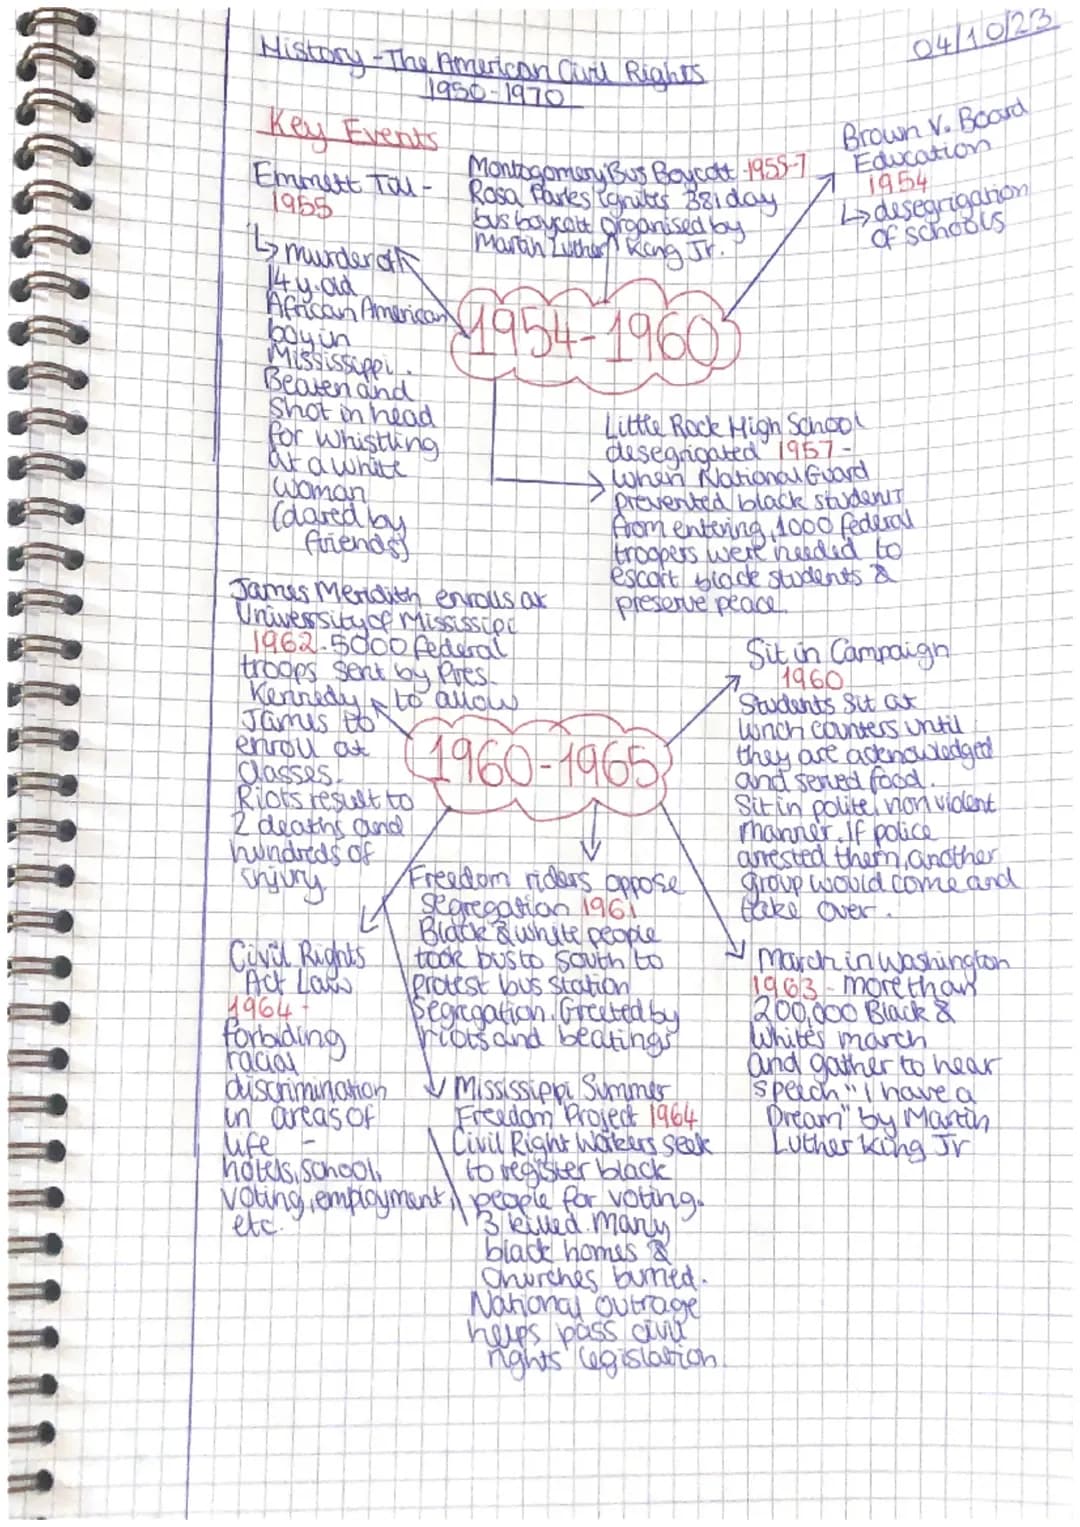 04/10/23
History - The American Civil Rights
1950-1970
Key Events
Emmett Till -
1955
↳ murder of
14 y.old
African American
boy in
Mississippi.
Beaten and
Shot in head
for whistling
at a white
woman
(dared by
friends)
Montogomery Bus Boycott 1955-7
Rosa Parks ignites 381 day
bus boycott organised by
Martin Luther King Jr.
Brown V. Board
Education
1954
↳ desegrigation
of schools
1954-1960
Little Rock High School
desegrigated 1957 -
when National Guard
prevented black students
from entering, 1000 federal
troopers were needed to
escort black students &
preserve peace.
James Meridith enrolls at
University of Mississipi
1962. 5000 federal
troops sent by Pres.
Kennedy to allow
James to
enroll at
classes.
Riots result to
2 deaths and
hundreds of
injury
1960-1965
Sit in Campaign
1960
Students sit at
lunch counters until
they are acknowledged
and served food.
Sit in polite, non violent
manner. If police
arrested them, another
group would come and
take over.
Civil Rights
Act Law
1964 -
forbiding
racial
discrimination
in areas of
life -
hotels, school,
voting, employment,
etc.
Freedom riders oppose
segregation 1961
Black & white people
took bus to South to
protest bus station
segregation. Greeted by
riots and beatings
Mississippi Summer
Freedom Project 1964
Civil Right Workers seek
to register black
people for voting.
3 killed. Many
black homes &
Churches burned.
National outrage
helps pass civil
rights legislation.
March in Washington
1963 - more than
200,000 Black &
Whites march
and gather to hear
speech "I have a
Dream" by Martin
Luther King Jr